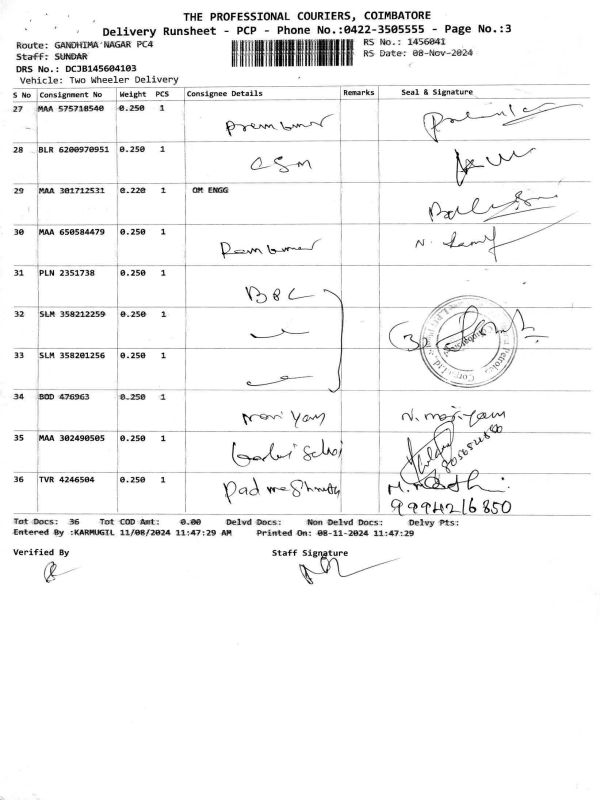 THE PROFESSIONAL COURIERS, COIMBATORE
Delivery Runsheet - PCP - Phone No.:0422-3505555 - Page No.:3
Route: GANDHIMA NAGAR PC4
RS No.: 1456041
Staff: SUNDAR
RS Date: 08-Nov-2024
DRS No.: DCJB145604103
Vehicle: Two Wheeler Delivery
S No Consignment No Weight PCS Consignee Details Remarks Seal & Signature
27 MAA 575718540 0.250 1 Premkumar
28 BLR 6200970951 0.250 1 CSM
29 MAA 301712531 0.220 1 OM ENGG
30 MAA 650584479 0.250 1 Ramkumar
31 PLN 2351738 0.250 1 BPC
32 SLM 358212259 0.250 1
33 SLM 358201256 0.250 1
34 BOD 476963 0.250 1 Mariyam N. Mariyam
35 MAA 302490505 0.250 1
36 TVR 4246504 0.250 1
9994216850
Tot Docs: 36 Tot COD Amt: 0.00 Delvd Docs: Non Delvd Docs: Delvy Pts:
Entered By :KARMUGIL 11/08/2024 11:47:29 AM Printed On: 08-11-2024 11:47:29
Verified By Staff Signature